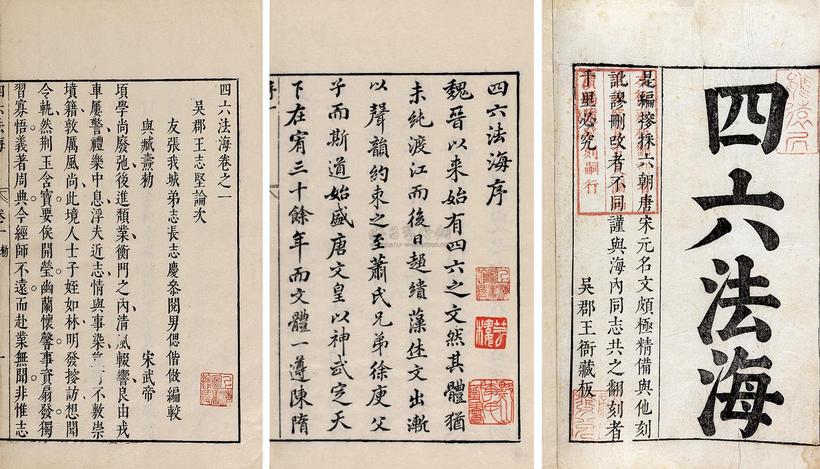 四六法海
是編搜採六朝唐宋元名文頗極精備與他刻
訛謬刪改者不同謹與海內同志共之翻刻者
千里必究
吳郡王衙藏板
四六法海序
魏晉以來始有四六之文然其體猶
未純渡江而後日趨縟藻休文出漸
以聲韻約束之至蕭氏兄弟徐庾父
子而斯道始盛唐文皇以神武定天
下在宥三十餘年而文體一遵陳隋
四六法海卷之一
吳郡王志堅論次
友張我城弟志長志慶叅閱男偲偕倣編較
與臧燾勑 宋武帝
頃學尚廢弛後進頹業衡門之內清風輟響良由戎
車屢警禮樂中息浮夫近志情與事染可不敷崇
墳籍敦厲風尚此境人士子姪如林明發搜訪想聞
令軌然荊玉含寶要俟開瑩幽蘭懷馨事資扇發獨
習寡悟義著周典今經師不遠而赴業無聞非惟志
四六法海 卷一 勑 一